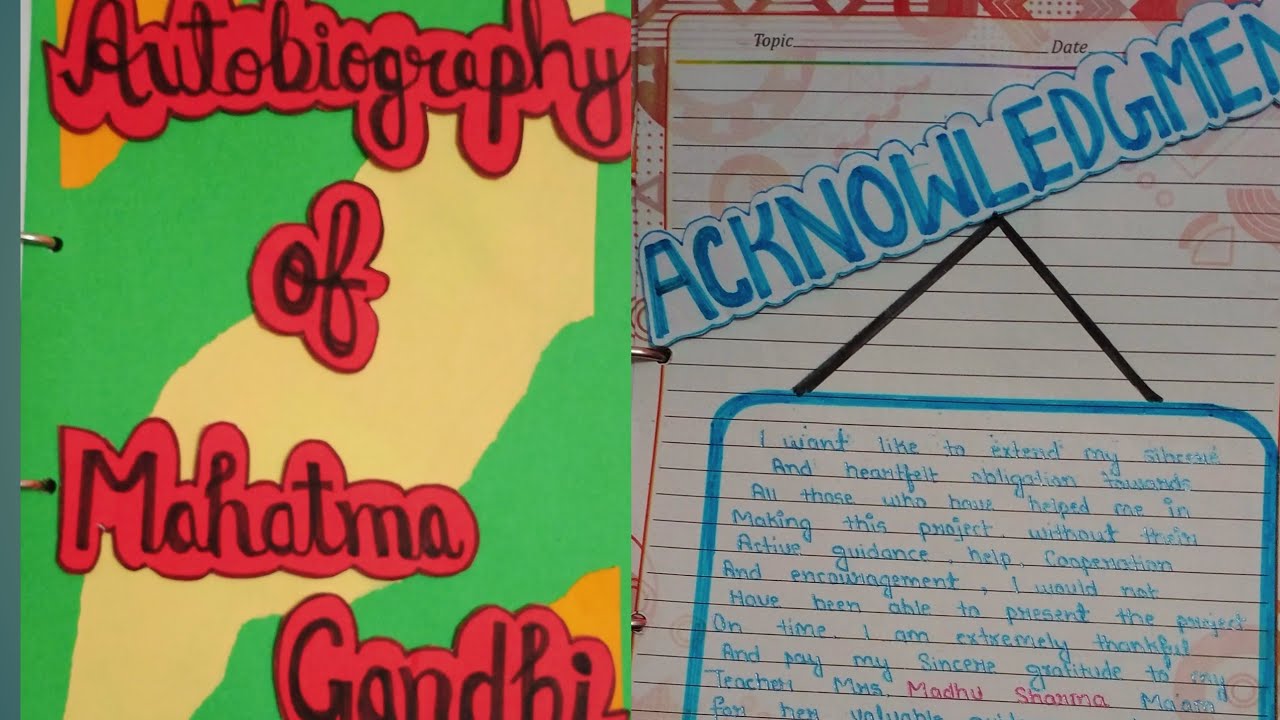 Autobiography
of
Mahatma
Gandhi
Topic Date
ACKNOWLEDGMEN
I want like to extend my sincere
And heartfelt obligation towards
All those who have helped me in
Making this project. without their
Active guidance, help, Cooperation
And encouragement, I would not
Have been able to present the project
On time. I am extremely thankful
And pay my Sincere gratitude to my
Teacher Mrs. Madhu Sharma Ma'am
for her valuable